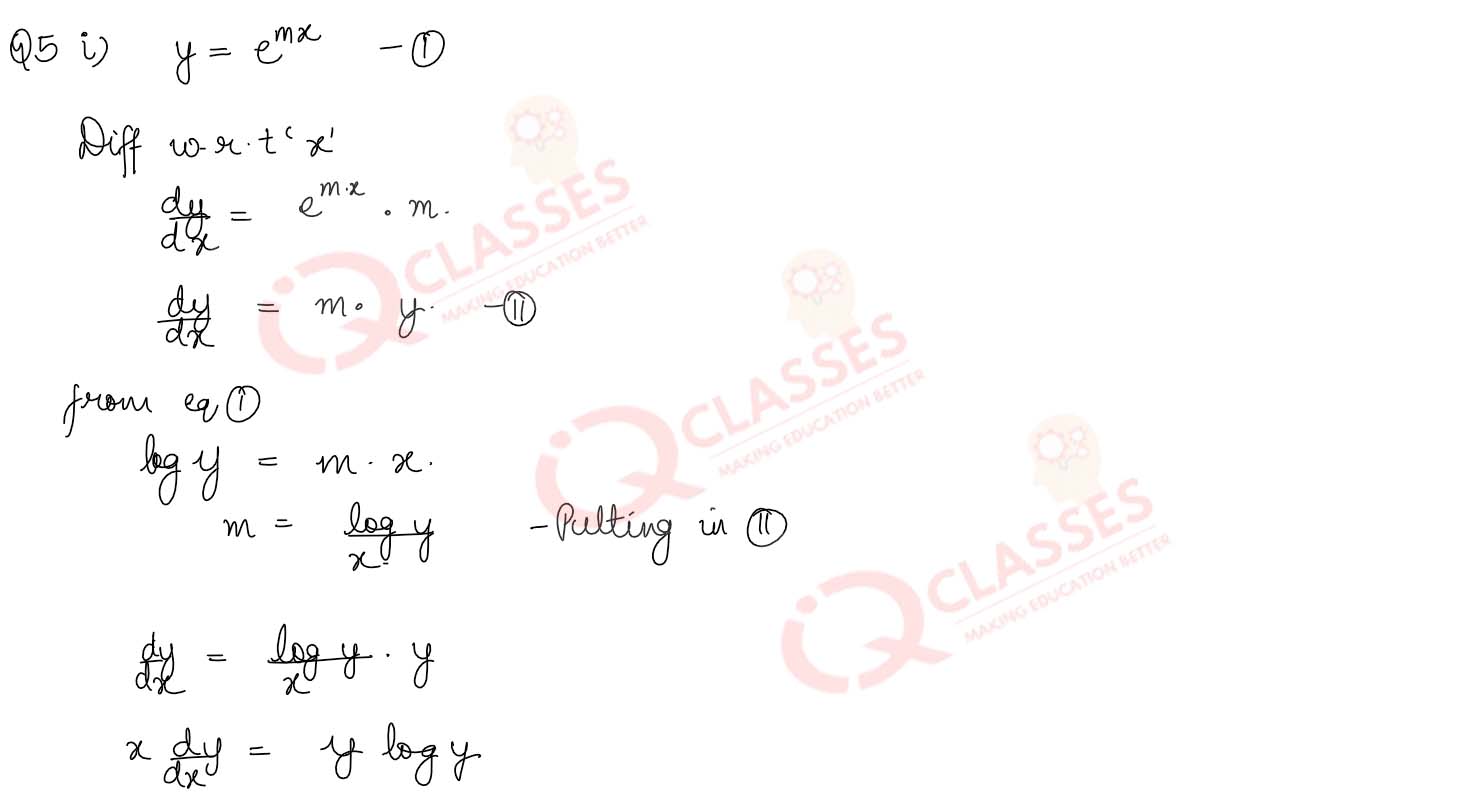 Q5 i) y = e^{mx} - ①
Diff w.r.t 'x'
dy/dx = e^{m.x} . m.
dy/dx = m. y. - ⑪
from eq ①
log y = m . x.
m = log y / x. - Putting in ⑪
dy/dx = log y / x . y
x dy/dx = y log y
iQ CLASSES
MAKING EDUCATION BETTER
iQ CLASSES
MAKING EDUCATION BETTER
iQ CLASSES
MAKING EDUCATION BETTER